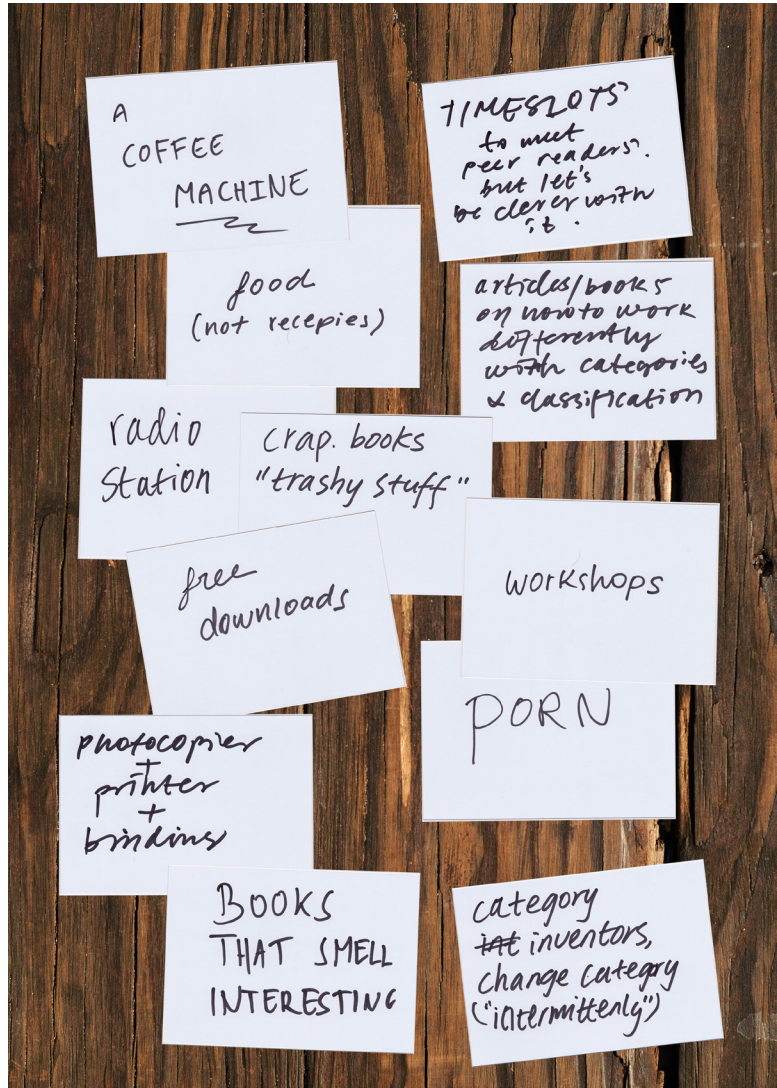 A
COFFEE
MACHINE
TIMESLOTS
to meet
peer readers.
but let's
be clever with
it.
food
(not recepies)
articles/books
on how to work
differently
with categories
& classification
radio
station
crap. books
"trashy stuff"
free
downloads
workshops
PORN
photocopier
+
printer
+
binding
BOOKS
THAT SMELL
INTERESTING
category
int inventors,
change category
("intermittenly")